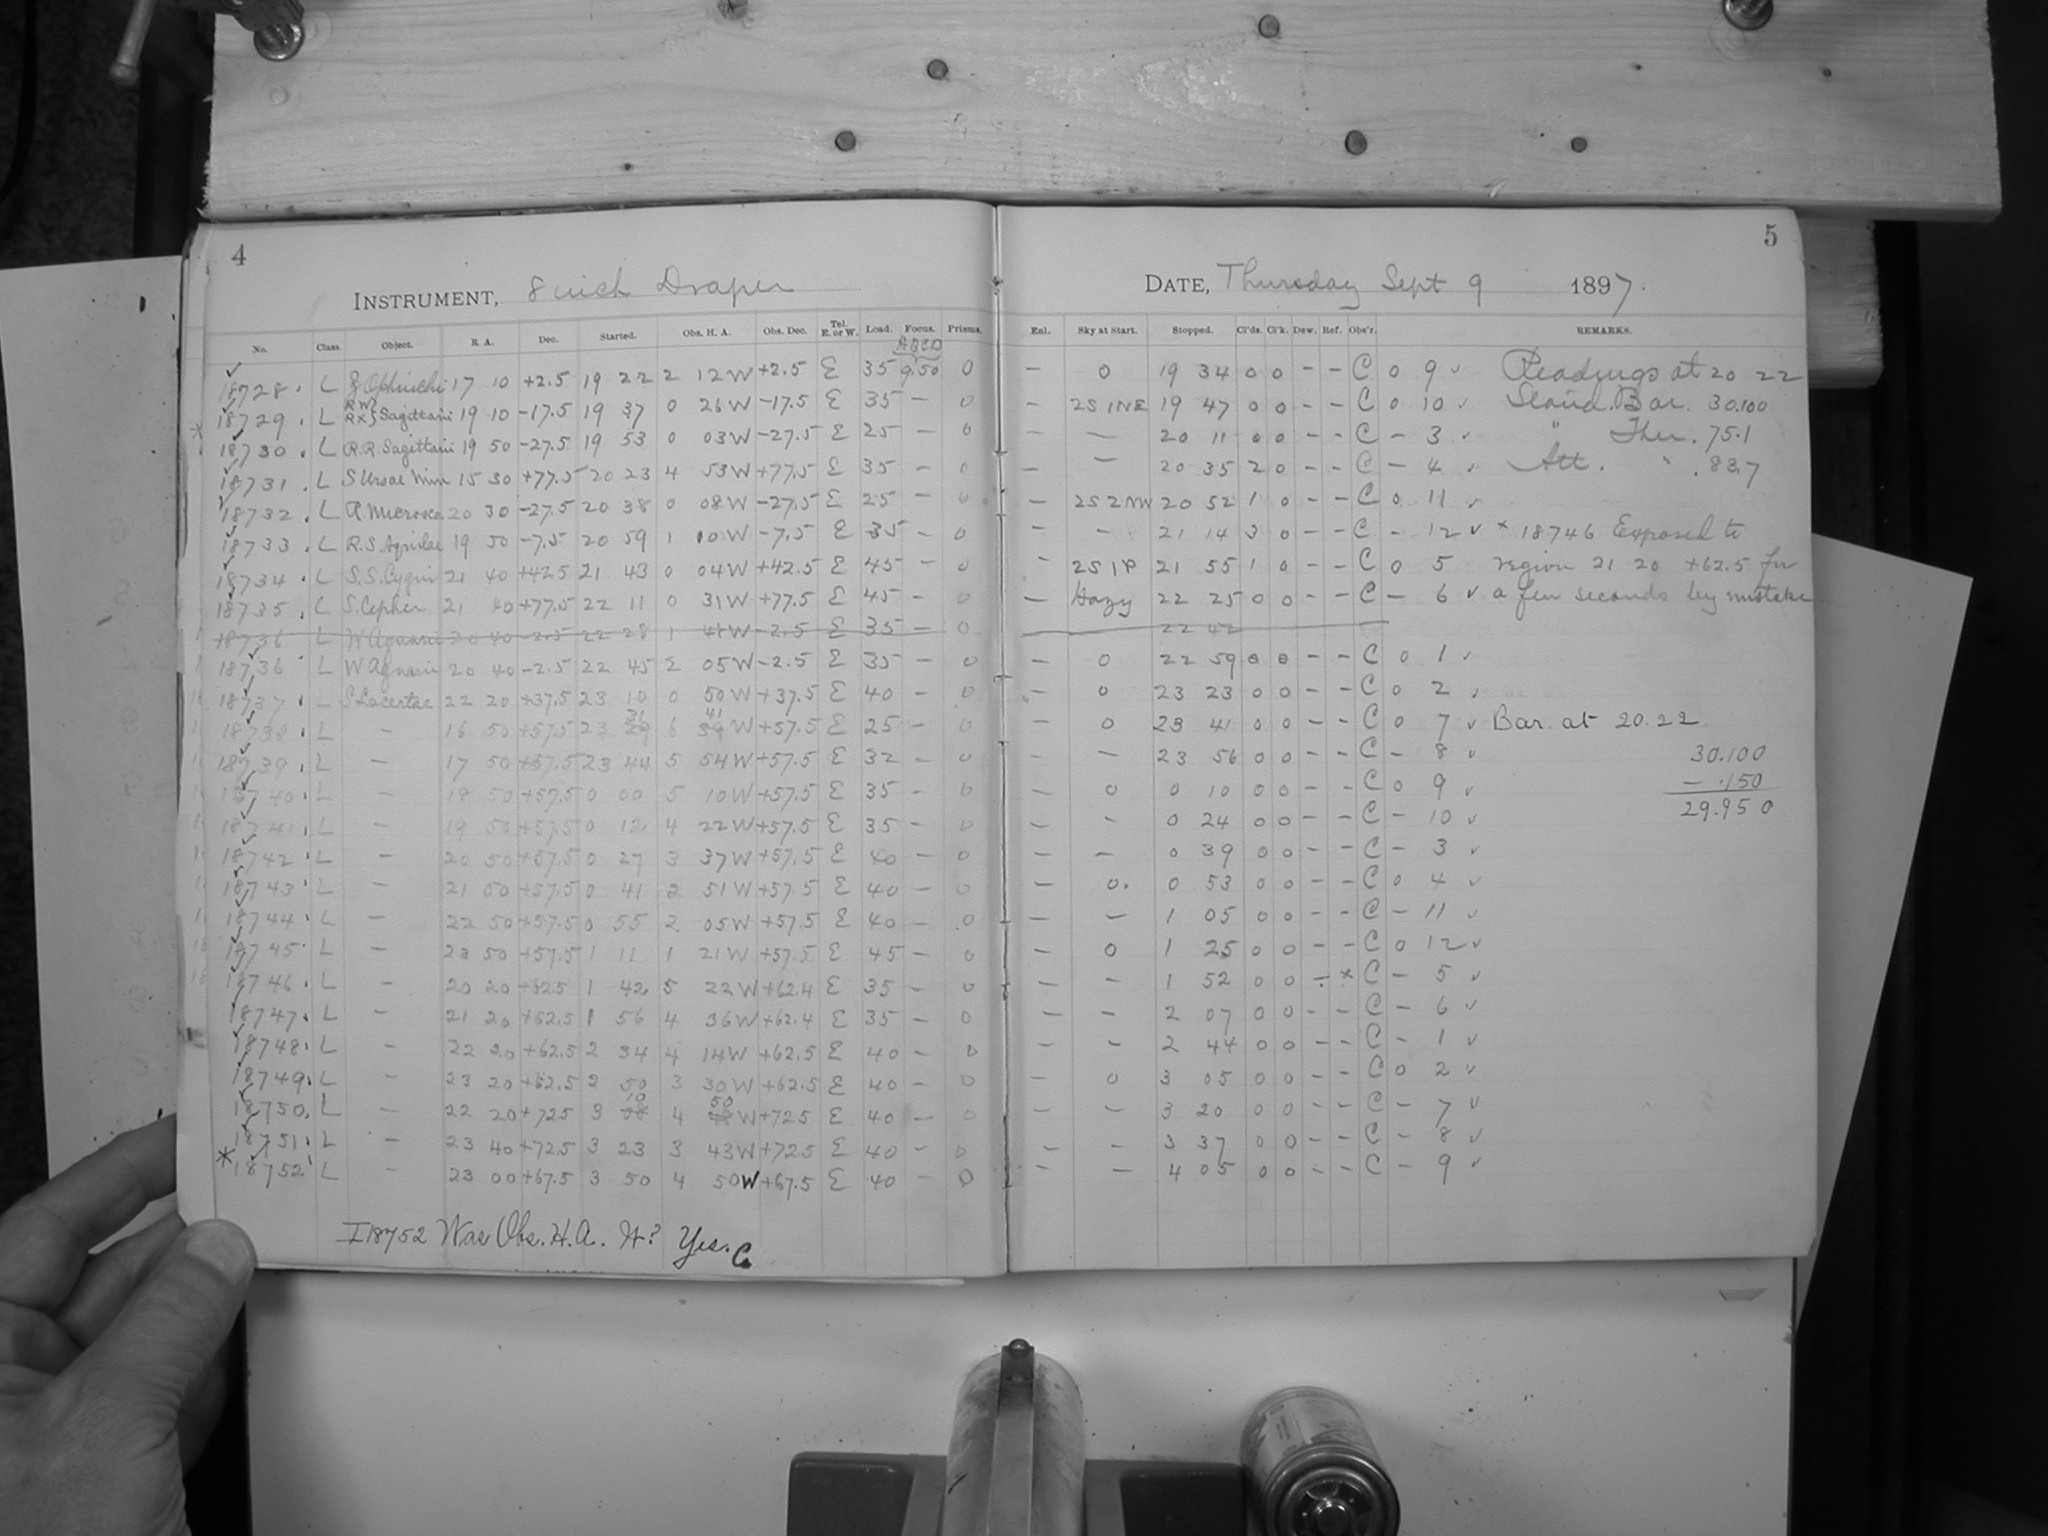 4
INSTRUMENT, 8 inch Draper
No. Class. Object. R. A. Dec. Started. Obs. H. A. Obs. Dec. Tel. E. or W. Load. Focus. Prisms.
ABCD
18728. L Ophiuchi 17 10 +2.5 19 22 2 12W +2.5 E 35 9.50 0
18729. L RW RX} Sagittarii 19 10 -17.5 19 37 0 26W -17.5 E 35 - 0
* 18730. L R.R. Sagittarii 19 50 -27.5 19 53 0 03W -27.5 E 25 - 0
18731. L S Ursae Min 15 30 +77.5 20 23 4 53W +77.5 E 35 - 0
18732. L R Microsc. 20 30 -27.5 20 38 0 08W -27.5 E 25 - 0
18733. L R.S. Aquilae 19 50 -7.5 20 59 1 10W -7.5 E 35 - 0
18734. L S.S. Cygni 21 40 +42.5 21 43 0 04W +42.5 E 45 - 0
18735. L S. Cephei 21 40 +77.5 22 11 0 31W +77.5 E 45 - 0
18736 L W Aquarii 20 40 -2.5 22 28 1 48W -2.5 E 35 - 0
18736 L W Aquarii 20 40 -2.5 22 45 2 05W -2.5 E 35 - 0
18737. L S Lacertae 22 20 +37.5 23 10 0 50W +37.5 E 40 - 0
31 41
18738. L - 16 50 +57.5 23 29 6 39W +57.5 E 25 - 0
18739. L - 17 50 +57.5 23 44 5 54W +57.5 E 32 - 0
18740. L - 18 50 +57.5 0 00 5 10W +57.5 E 35 - 0
18741. L - 19 50 +57.5 0 12 4 22W +57.5 E 35 - 0
18742. L - 20 50 +57.5 0 27 3 37W +57.5 E 40 - 0
18743. L - 21 50 +57.5 0 41 2 51W +57.5 E 40 - 0
18744. L - 22 50 +57.5 0 55 2 05W +57.5 E 40 - 0
18745. L - 23 50 +57.5 1 11 1 21W +57.5 E 45 - 0
18746. L - 20 20 +62.5 1 42 5 22W +62.4 E 35 - 0
18747. L - 21 20 +62.5 1 56 4 36W +62.4 E 35 - 0
18748. L - 22 20 +62.5 2 34 4 14W +62.5 E 40 - 0
18749. L - 23 20 +62.5 2 50 3 30W +62.5 E 40 - 0
10 50
18750. L - 22 20 +72.5 3 08 4 48W +72.5 E 40 - 0
18751. L - 23 40 +72.5 3 23 3 43W +72.5 E 40 - 0
* 18752 L - 23 00 +67.5 3 50 4 50W +67.5 E 40 - 0
I 18752 Was Obs. H.A. W? Yes. C.
5
DATE, Thursday Sept 9 1897.
Enl. Sky at Start. Stopped. Cl'ds. Cl'k. Dew. Ref. Obs'r. REMARKS.
- 0 19 34 0 0 - - C 0 9 ✓ Readings at 20 22
- 2S 1NE 19 47 0 0 - - C 0 10 ✓ Stand. Bar. 30.100
- 20 11 0 0 - - C - 3 ✓ " Ther. 75.1
- - 20 35 2 0 - - C - 4 ✓ Att. " . 83.7
- 2S 2NW 20 52 1 0 - - C 0 11 ✓
- - 21 14 3 0 - - C - 12 ✓ * 18746 Exposed to
- 2S 1P 21 55 1 0 - - C 0 5 region 21 20 +62.5 for
- Hazy 22 25 0 0 - - C - 6 ✓ a few seconds by mistake
22 42
- 0 22 59 0 0 - - C 0 1 ✓
- 0 23 23 0 0 - - C 0 2 ✓
- 0 23 41 0 0 - - C 0 7 ✓ Bar. at 20.22
- - 23 56 0 0 - - C - 8 ✓ 30.100
- 0 0 10 0 0 - - C 0 9 ✓ - .150
- - 0 24 0 0 - - C - 10 ✓ 29.950
- - 0 39 0 0 - - C - 3 ✓
- 0. 0 53 0 0 - - C 0 4 ✓
- - 1 05 0 0 - - C - 11 ✓
- 0 1 25 0 0 - - C 0 12 ✓
- - 1 52 0 0 - * C - 5 ✓
- - 2 07 0 0 - - C - 6 ✓
- - 2 44 0 0 - - C - 1 ✓
- 0 3 05 0 0 - - C 0 2 ✓
- - 3 20 0 0 - - C - 7 ✓
- - 3 37 0 0 - - C - 8 ✓
- - 4 05 0 0 - - C - 9 ✓